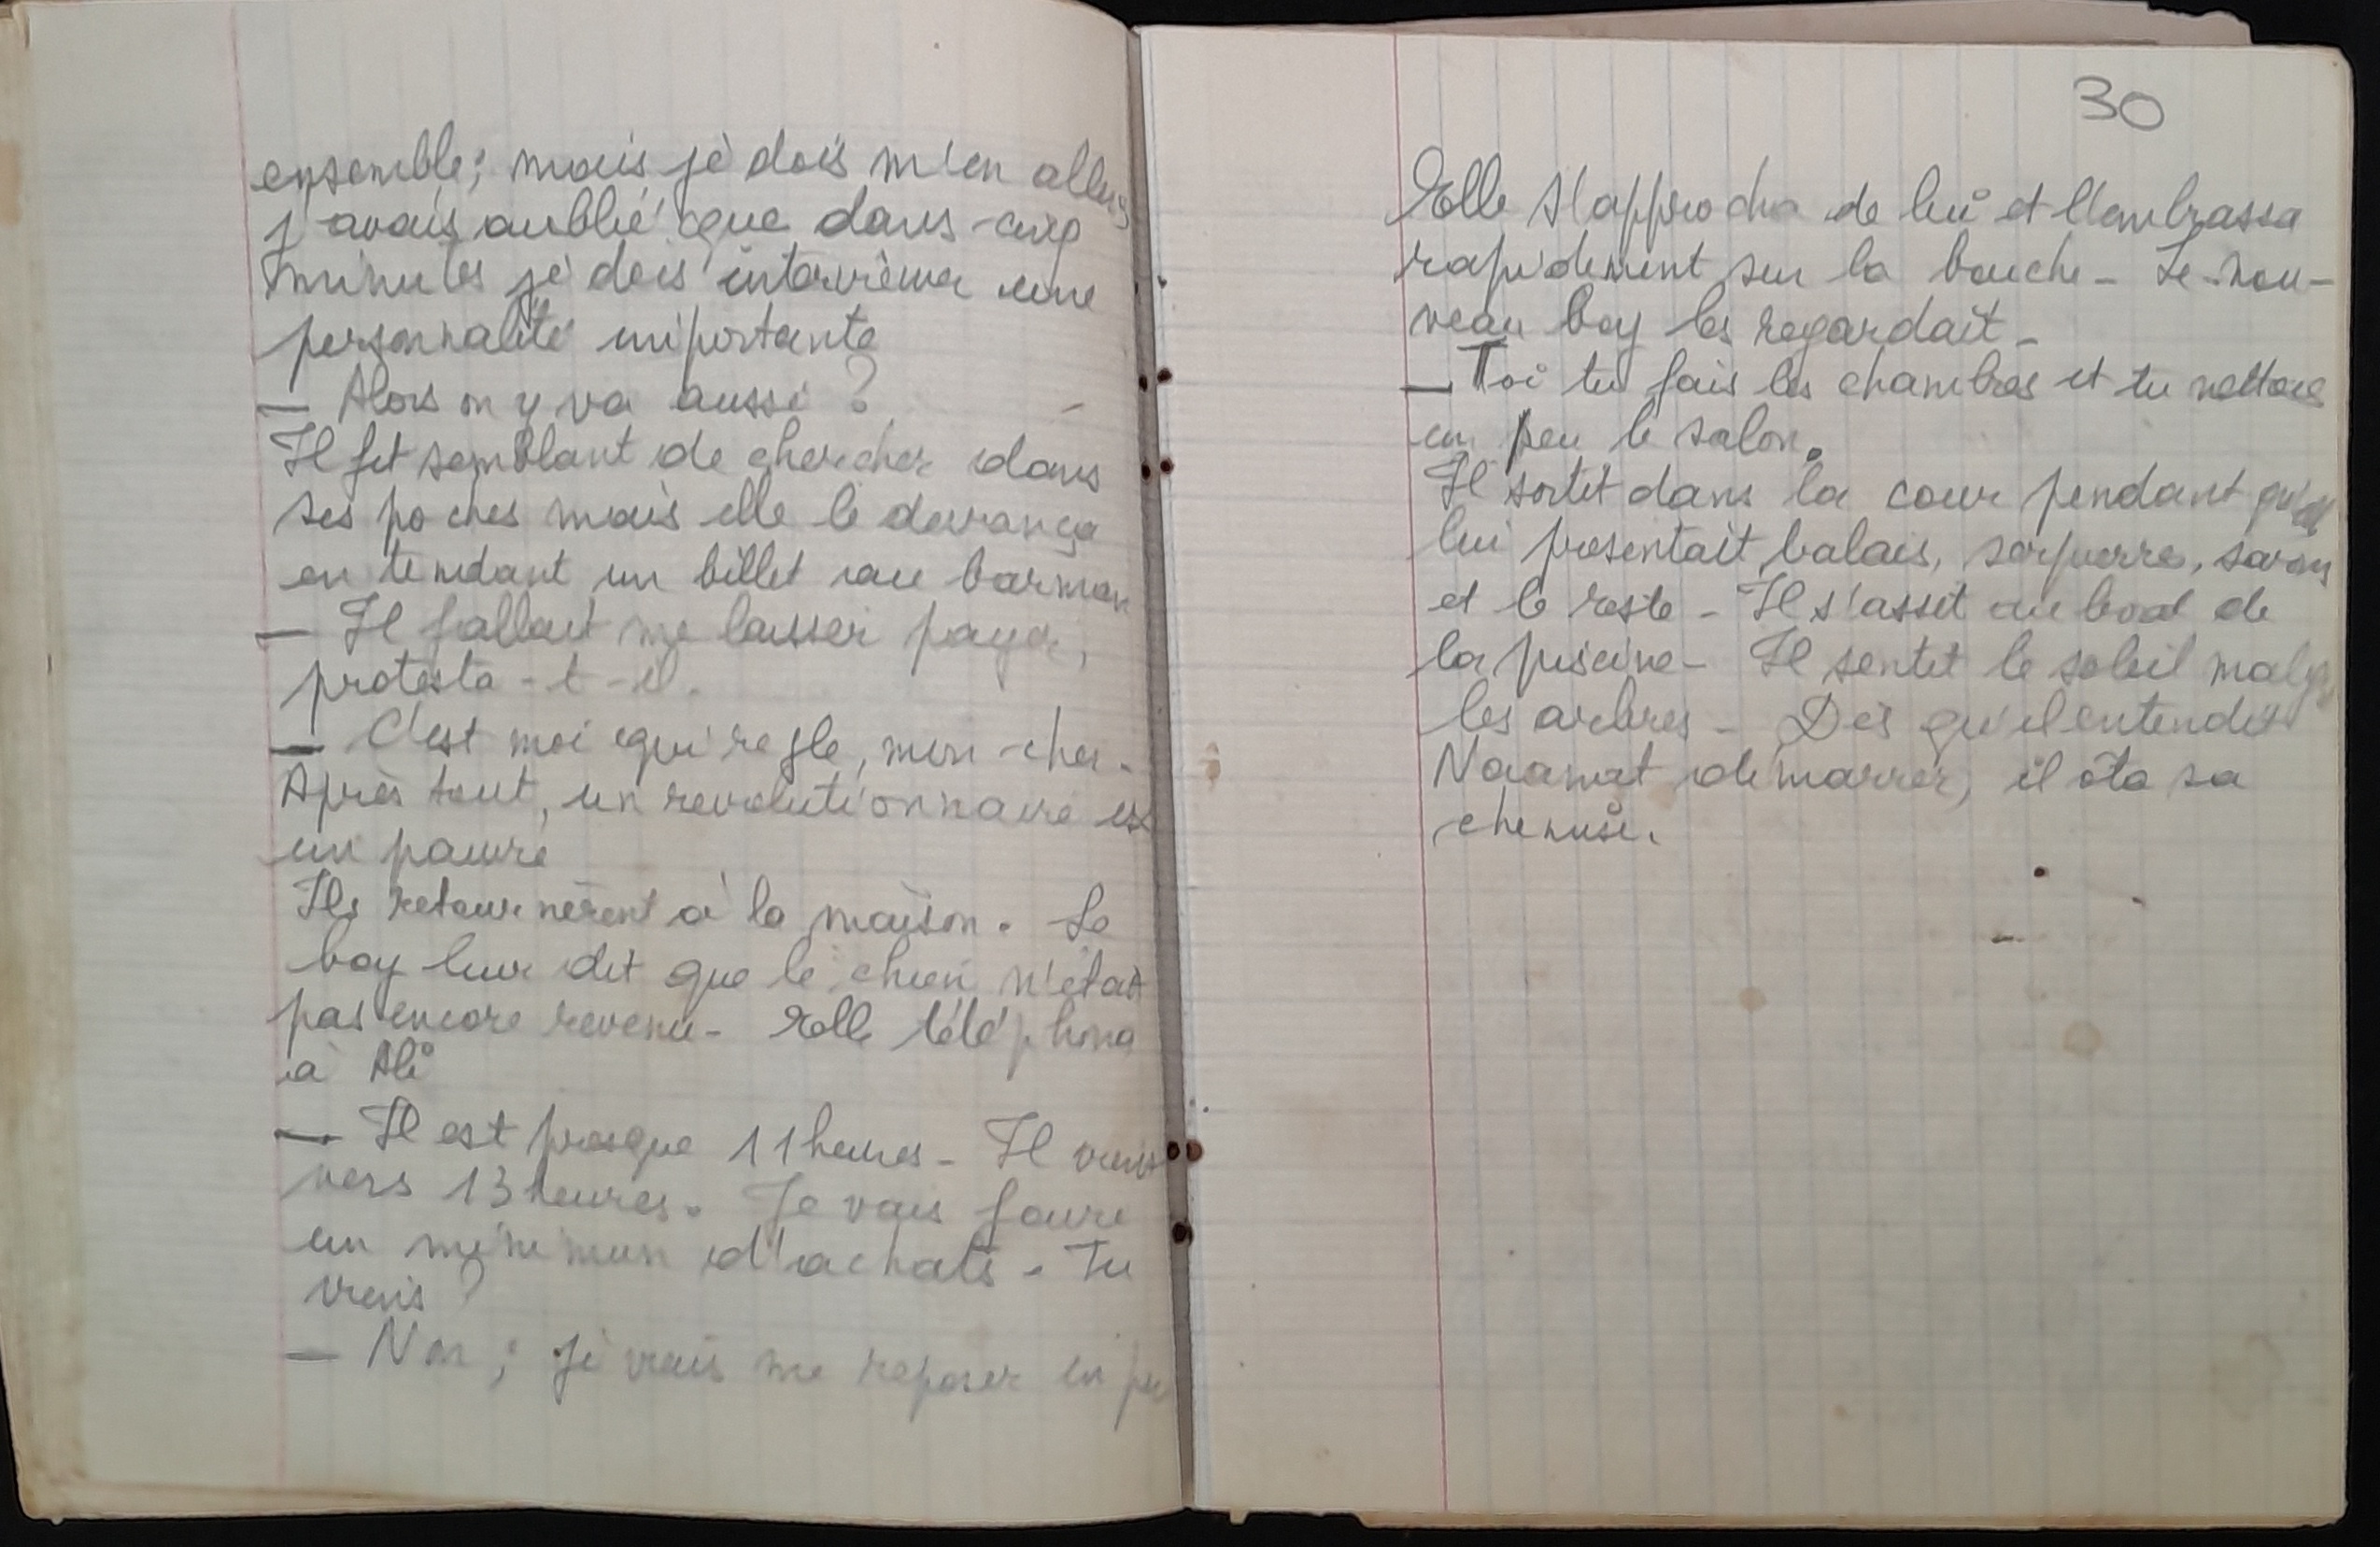 ensemble; mais je dois m'en aller;
j'avais oublié que dans cinq
minutes je dois interviewer une
personnalité importante
— Alors on y va aussi ?
Il fit semblant de chercher dans
ses poches mais elle le devança
en tendant un billet au barman
— Il fallait me laisser payer,
protesta-t-il.
— C'est moi qui regle, mon cher.
Après tout, un revolutionnaire est
un pauvre
Ils retournèrent à la maison. Le
boy leur dit que le chien n'était
pas encore revenu - Elle téléphona
à Ali
— Il est presque 11 heures - Il vient
vers 13 heures. Je vais faire
un minimum d'achats - Tu
viens ?
— Non ; je vais me reposer un peu
30
Elle s'approcha de lui et l'embrassa
rapidement sur la bouche - Le nou-
veau boy les regardait -
— Toi tu fais les chambres et tu nettoies
un peu le salon.
Il sortit dans la cour pendant qu'elle
lui presentait balais, serpierre, savons
et le reste - Il s'assit au bord de
la piscine - Il sentit le soleil malgré
les arbres - Dès qu'il entendit
Naamat démarrer, il ôta sa
chemise.